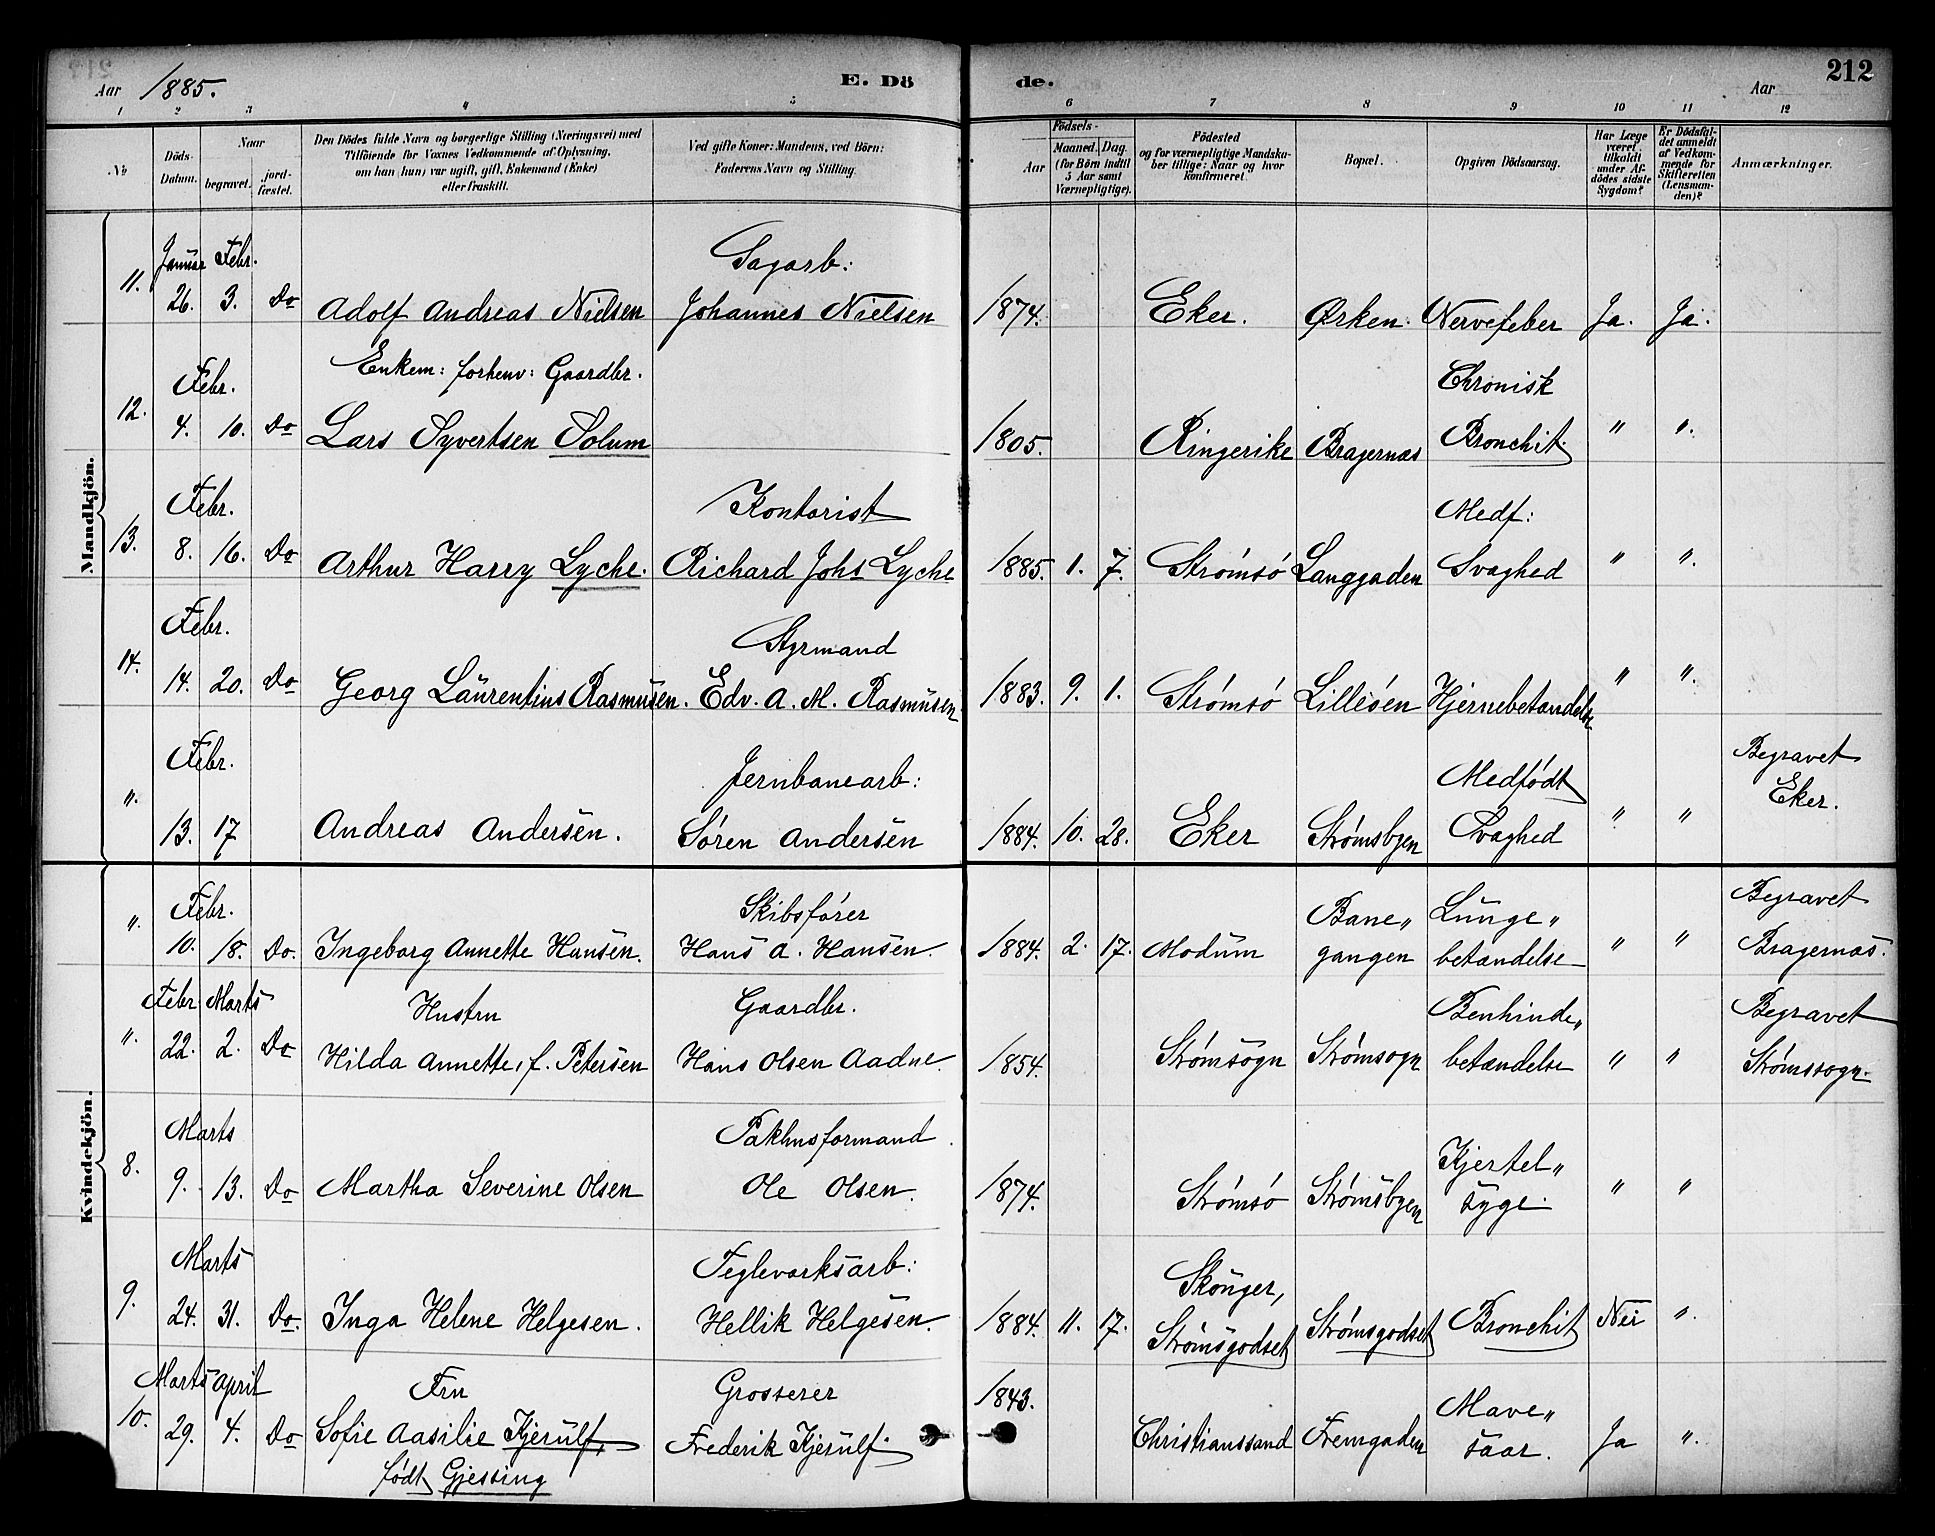 Aar 1885. E. Dö de. Aar 212
1 2 3 4 5 6 7 8 9 10 11 12
№
Döds-Datum.
Naar
begravet.
jord-fæstet.
Den Dödes fulde Navn og borgerlige Stilling (Næringsvei) med
Tilföiende for Voxnes Vedkommende af Oplysning,
om han (hun) var ugift, gift, Enkemand (Enke)
eller fraskilt.
Ved gifte Koner: Mandens, ved Börn:
Faderens Navn og Stilling.
Födsels-
Aar
Maaned. Dag.
(for Börn indtil
5 Aar samt
Værnepligtige).
Födested
og for værnepligtige Mandska-
ber tillige: Naar og hvor
konfirmeret.
Bopæl.
Opgiven Dödsaarsag.
Har Læge
været
tilkaldt
under Af-
dödes sidste
Sygdom?
Er Dödsfal-
det anmeldt
af Vedkom-
mende for
Skifteretten
(Lensman-
den)?
Anmærkninger.
Mandkjön.
Januar Febr. Sagarb:
11. 26. 3. Do Adolf Andreas Nielsen Johannes Nielsen 1874. Eker. Ørken. Nervefeber Ja. Ja.
Febr. Enkem: forhenv: Gaardbr. Chronisk
12. 4. 10. Do Lars Syvertsen Solum 1805. Ringerike Bragernæs Bronchit. " ".
Febr. Kontorist Medf:
13. 8. 16. Do Arthur Harry Lyche. Richard Johs Lyche 1885. 1. 7. Strømsö Langgaden Svaghed " ".
Febr. Styrmand
14. 14. 20. Do Georg Laurentius Rasmusen. Edv. A. M. Rasmusen 1883. 9. 1. Strømsö Lilleöen Hjernebetændelse " ".
Febr. Jernbanearb: Medfødt Begravet
". 13. 17 Andreas Andersen. Søren Andersen 1884. 10. 28. Eker Strømsbyen Svaghed " " Eker.
Kvindekjön.
Febr. Skibsfører Bane„ Lunge„ Begravet
". 10. 18. Do. Ingeborg Annette Hansen. Hans A. Hansen. 1884. 2. 17. Modum gangen betændelse " " Bragernæs.
Febr. Marts Hustru Gaardbr. Benhinde„ Begravet
". 22. 2. Do Hilda Annette, f. Petersen Hans Olsen Aadne. 1854. Strømsogn Strømsogn betændelse " " Strømssogn.
Marts Pakhusformand Kjertel„
8. 9. 13. Do Martha Severine Olsen Ole Olsen. 1874. Strømsö Strømsbyen syge. " "
Marts Teglverksarb: Skönger,
9. 24. 31. Do. Inga Helene Helgesen. Hellik Helgesen. 1884. 11. 17. Strømsgodset Strømsgodset Bronchit Nei ".
Marts April Fru Grosserer 1843. Mave„
10. 29. 4. Do Sofie Aasilie Kjerulf, Frederik Kjerulf. Christianssand Fremgaden saar. Ja ".
født Gjessing